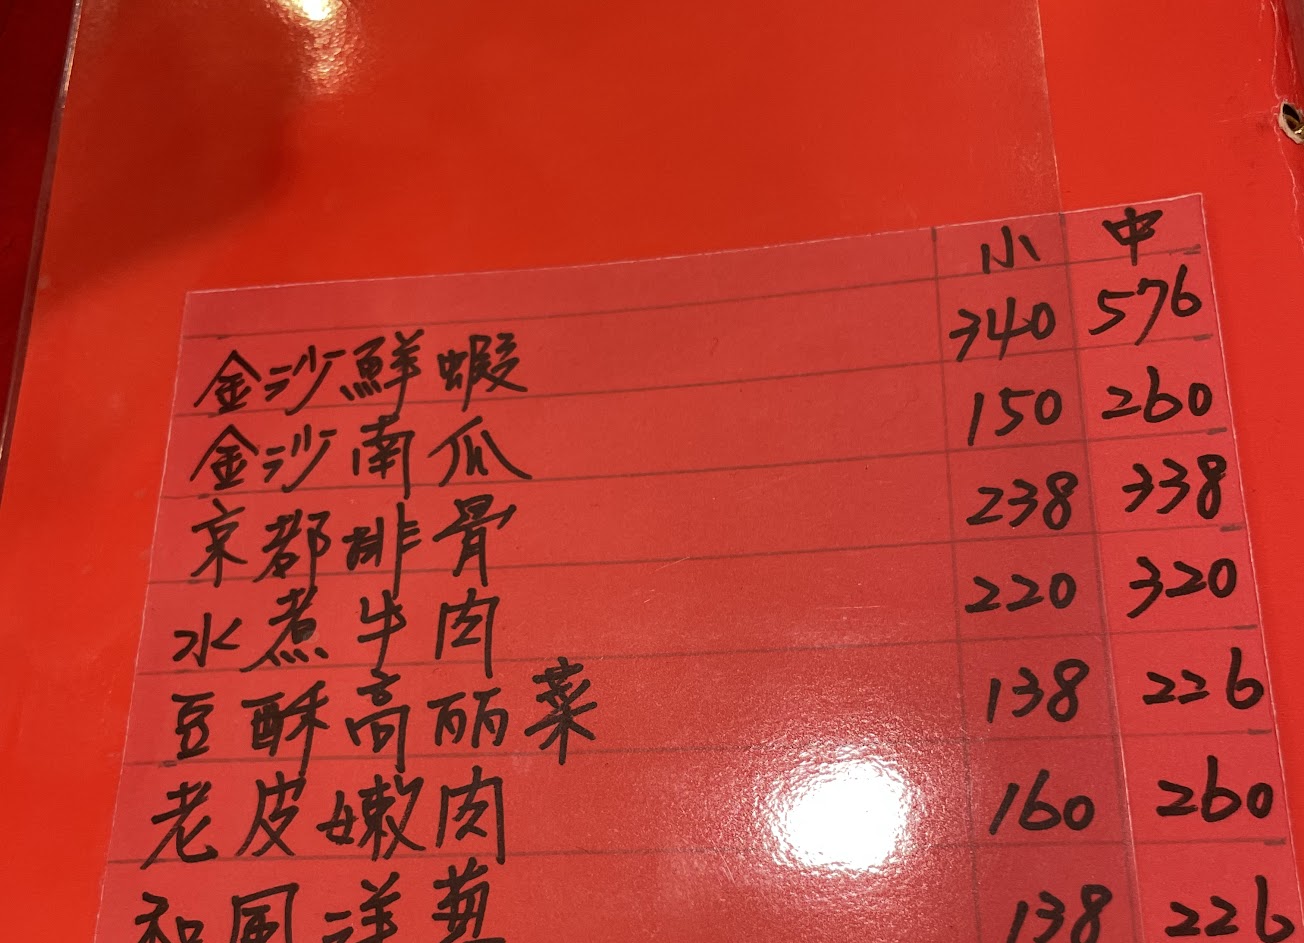 小 中
金沙鮮蝦 340 576
金沙南瓜 150 260
京都排骨 238 338
水煮牛肉 220 320
豆酥高丽菜 138 226
老皮嫩肉 160 260
和風洋蔥 138 226